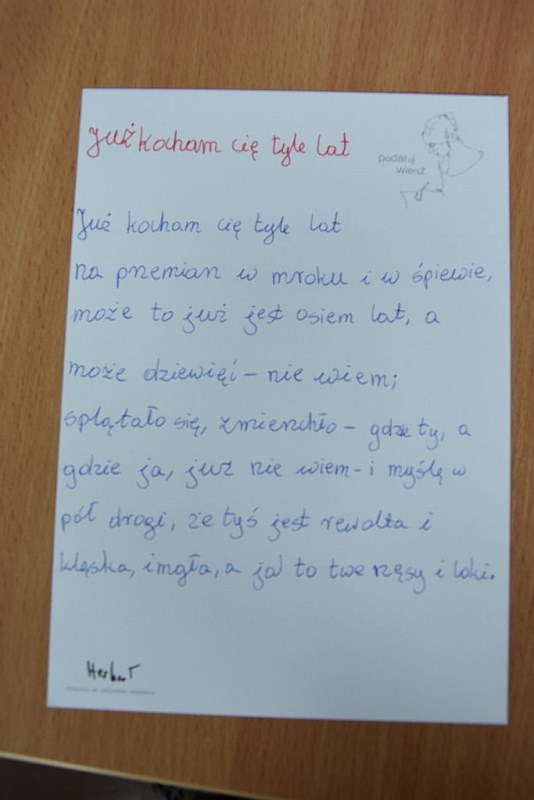 Już kocham cię tyle lat
podaruj
wiersz
Już kocham cię tyle lat
na przemian w mroku i w śpiewie,
może to już jest osiem lat, a
może dziewięć - nie wiem;
splątało się, zmierzchło - gdzie ty, a
gdzie ja, już nie wiem - i myślę w
pół drogi, że tyś jest rewolta i
klęska, i mgła, a ja to twe rzęsy i loki.
Herbert